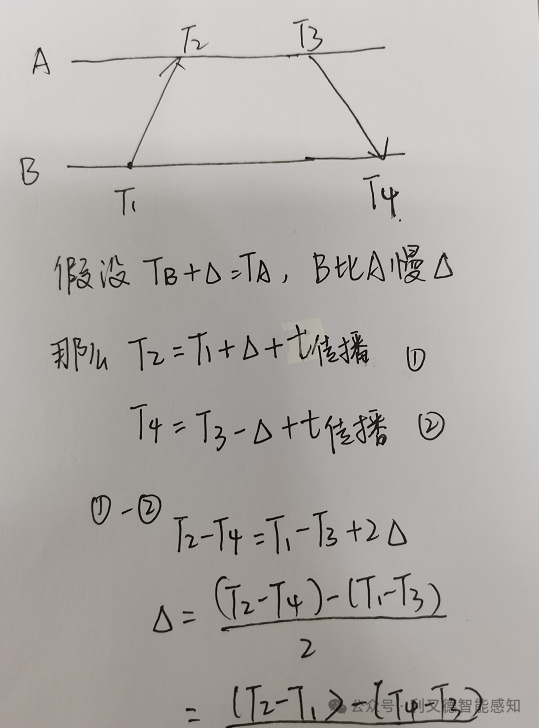 A T2 T3
B
T1 T4
假设 TB+Δ=TA, B比A慢Δ
那么 T2=T1+Δ+t传播 ①
T4=T3-Δ+t传播 ②
①-②
T2-T4=T1-T3+2Δ
Δ=(T2-T4)-(T1-T3)
2
=(T2-T1)-(T4-T3)
公众号·利又德智能感知